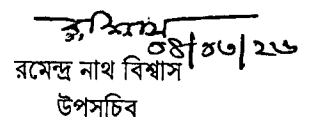 ০৪/০৩/২৬
রমেন্দ্র নাথ বিশ্বাস
উপসচিব